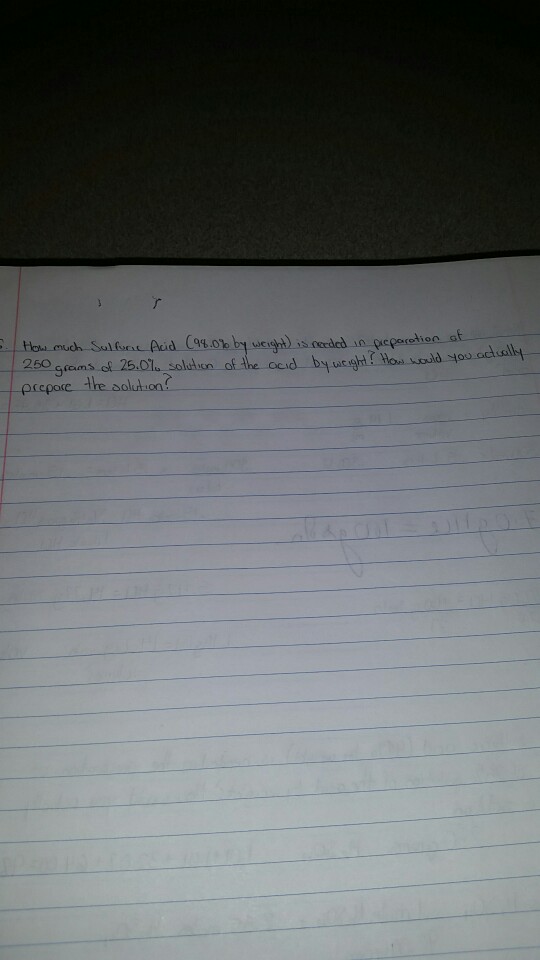 How much Sulfuric Acid (98.0% by weight) is needed in preparation of
250 grams of 25.0% solution of the acid by weight? How would you actually
prepare the solution?